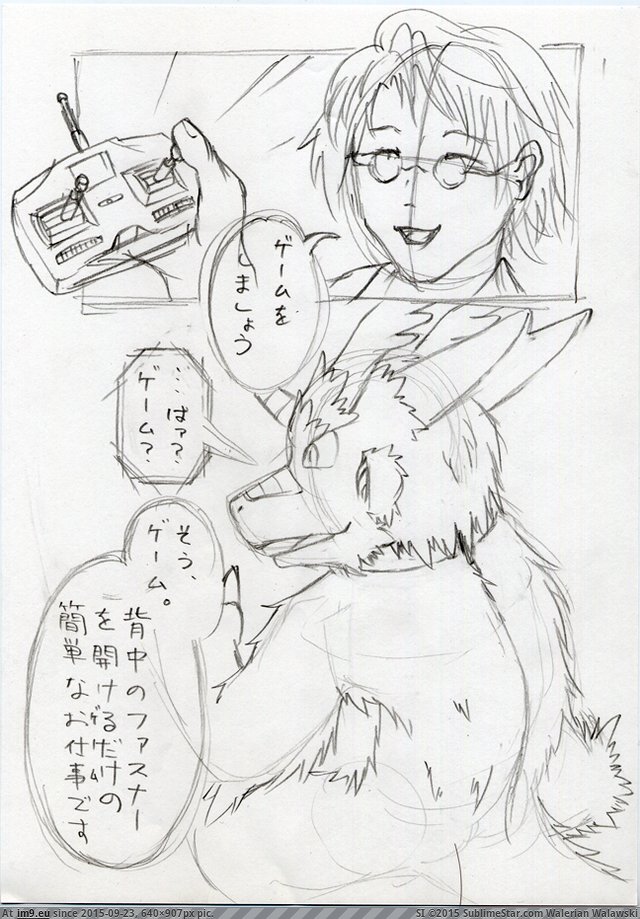 ゲームを
しましょう
…はァ？
ゲーム？
そう、
ゲーム。
背中のファスナー
を開けるだけの
ゲーム
簡単なお仕事です
At im9.eu since 2015-09-23, 640×907px pic.
SI ©2015 SublimeStar.com Walerian Walawski